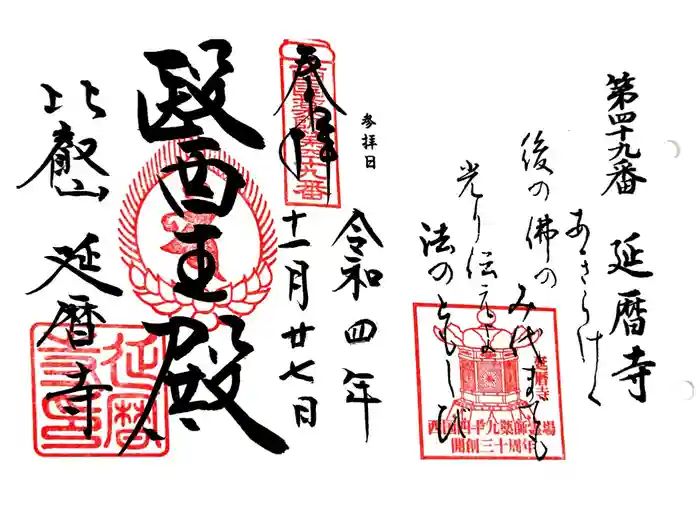 第四十九番 延暦寺
あきらけく
後の佛のみ代までも
光り伝えよ
法のともしび
延暦寺
西国四十九薬師霊場
開創三十周年
参拝日
令和四年
十一月廿七日
奉拝
醫王殿
比叡山 延暦寺